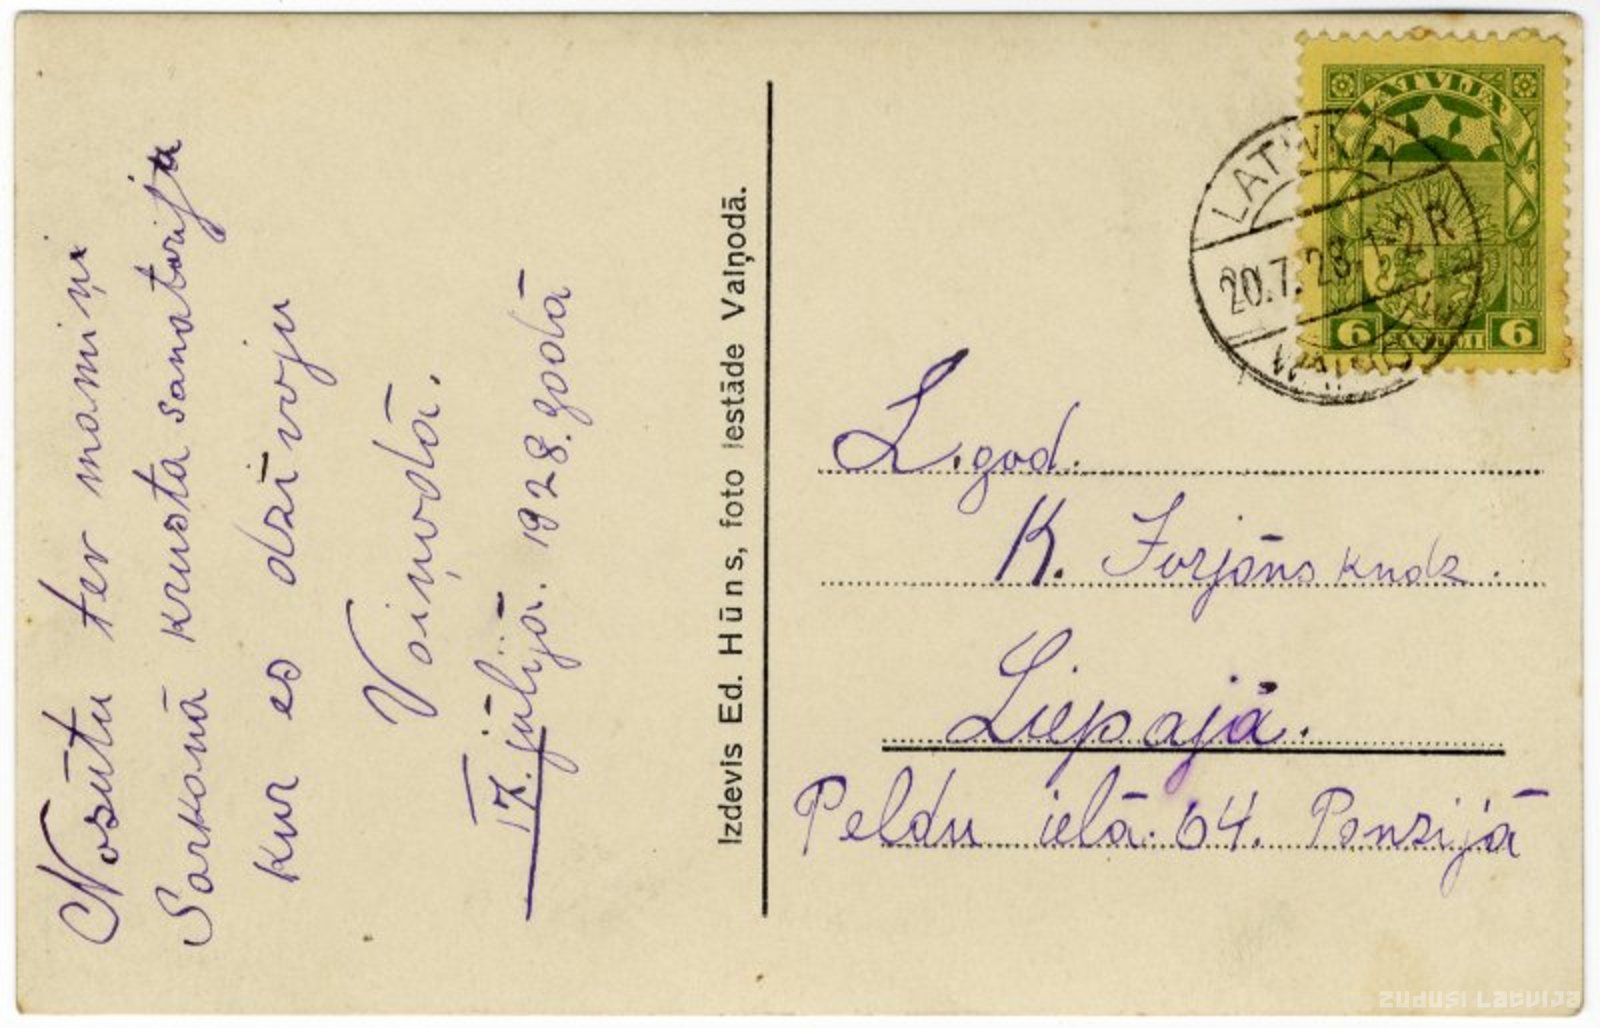 Nosūtu tev mamiņi
Sarkanā krusta sanatorija
kur es dzīvoju
Vaiņodā.
17. jūlijā. 1928. godā
Izdevis Ed. Hūns, foto iestāde Vaiņodā.
LATVIJEN
LATVIJA
20.7.28.1-2R
6 SANTIMI 6
L. god.
K. Forjāns kndz.
Liepajā.
Peldu ielā. 64. Panzijā
zudusi Latvija